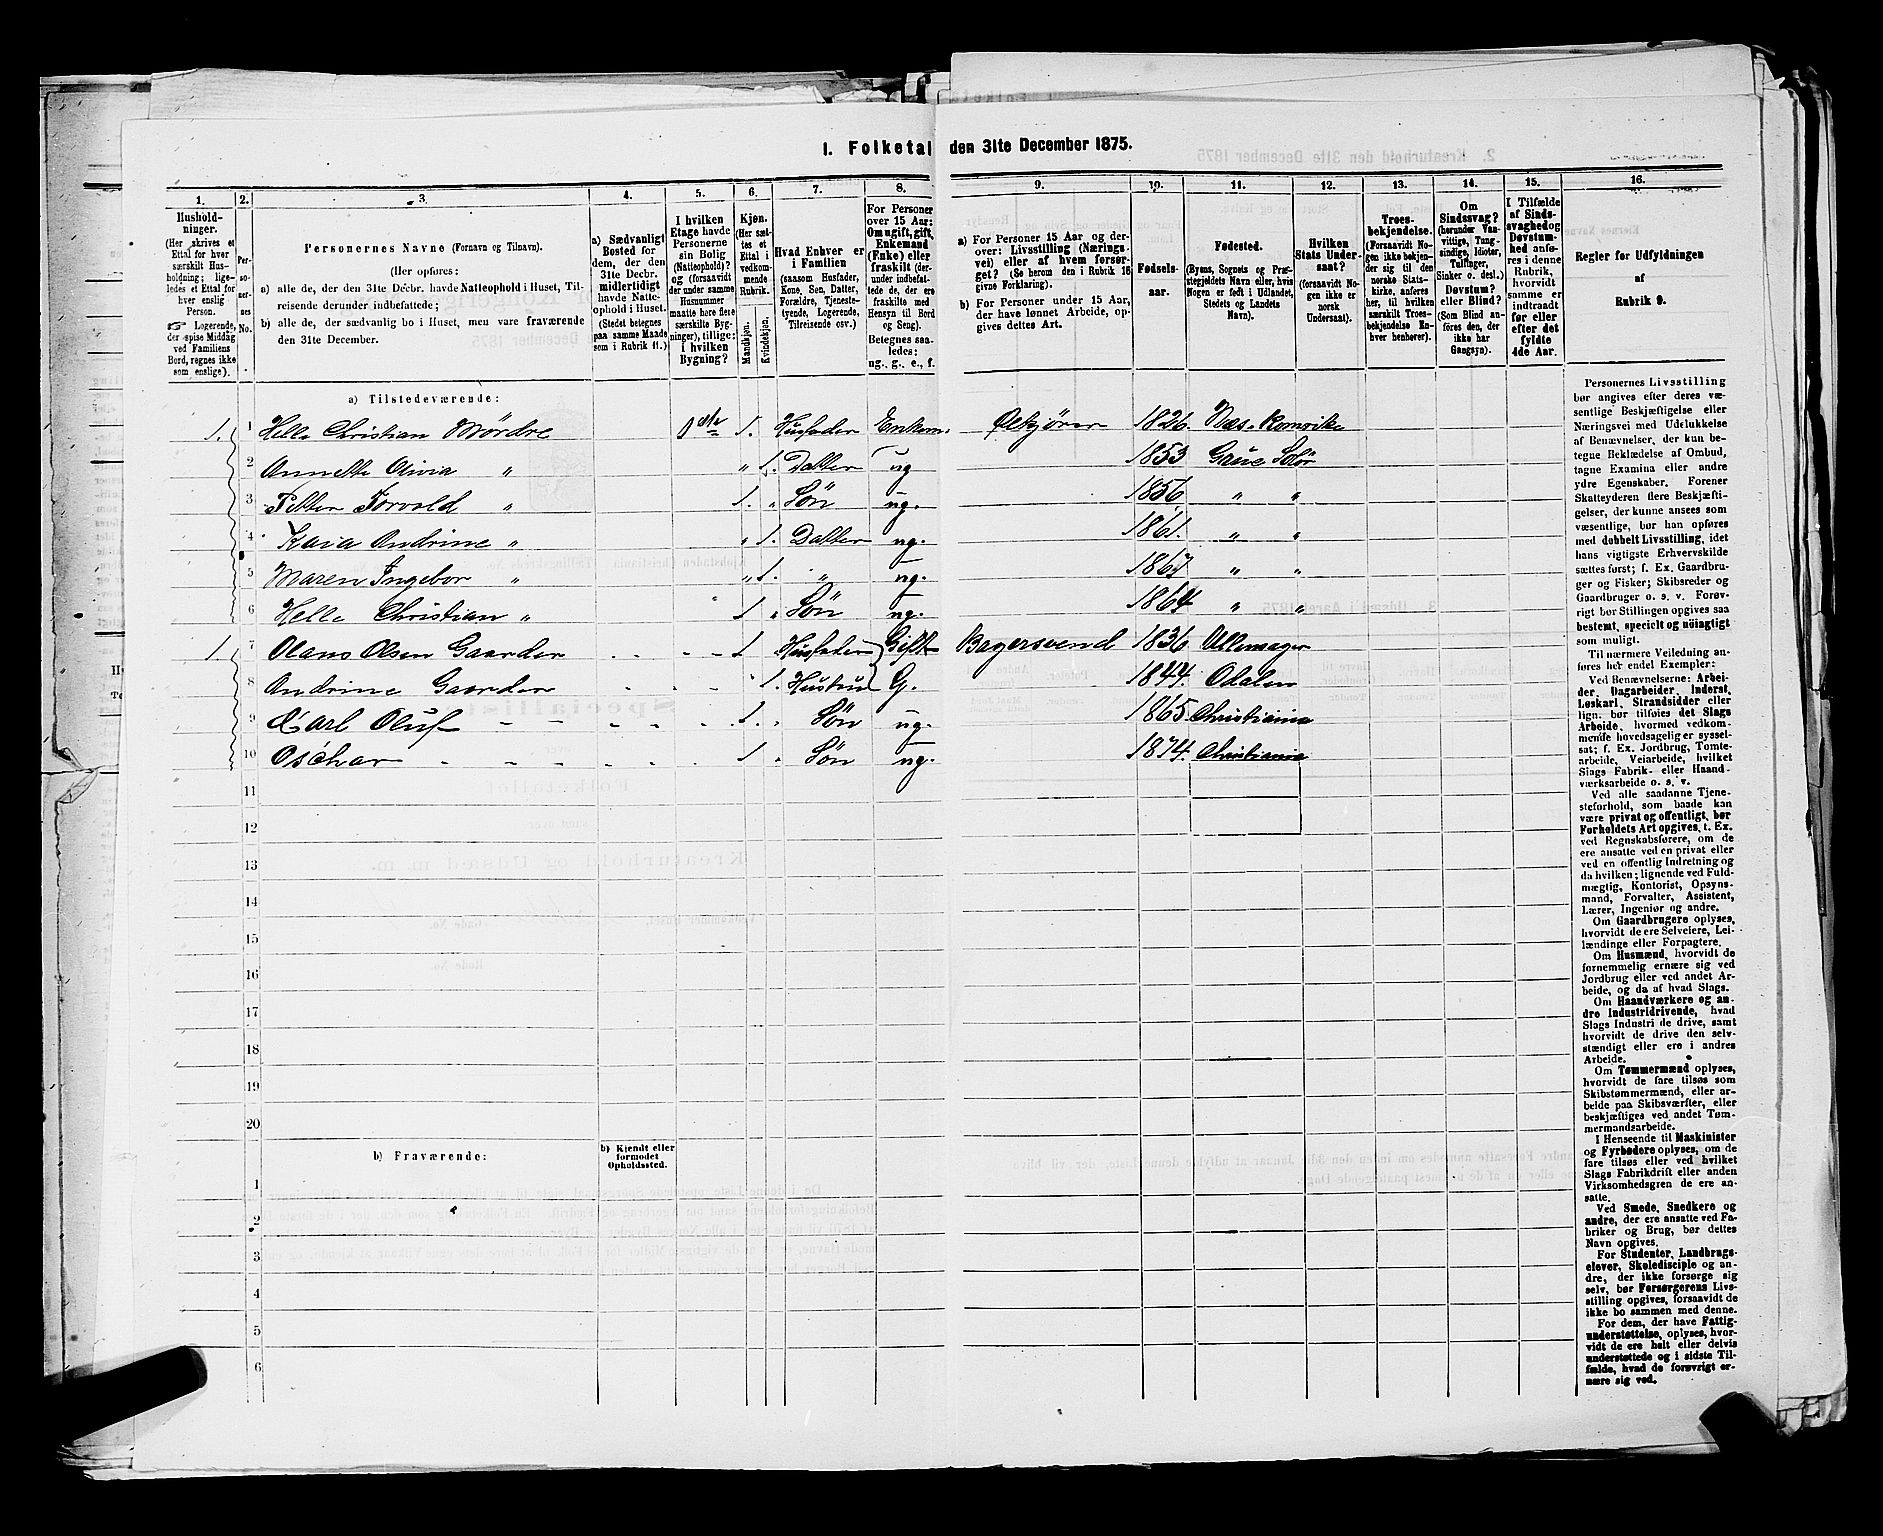 1. Folketal den 31te December 1875.
1. 2. 3. 4. 5. 6. 7. 8. 9. 10. 11. 12. 13. 14. 15. 16.
Hushold-
ninger.
(Her skrives et
Ettal for hver
særskilt Hus-
holdning; lige-
ledes et Ettal for
hver enslig
Person.
Logerende,
der spise Middag
ved Familiens
Bord, regnes ikke
som enslige).
Per-
so-
ner-
nes
No.
Personernes Navne (Fornavn og Tilnavn).
(Her opføres:
a) alle de, der den 31te Decbr. havde Natteophold i Huset, Til-
reisende derunder indbefattede;
b) alle de, der sædvanlig bo i Huset, men vare fraværende
den 31te December.
a) Sædvanligt
Bosted for
dem, der den
31te Decbr.
midlertidigt
havde Natte-
ophold i Huset.
(Stedet betegnes
paa samme Maade
som i Rubrik 11.)
I hvilken
Etage havde
Personerne
sin Bolig
(Natteophold)?
og (forsaavidt
der under samme
Husnummer
maatte høre flere
særskilte Byg-
ninger), tillige:
i hvilken
Bygning?
Kjøn.
(Her sæt-
tes et
Ettal i
vedkom-
mende
Rubrik.)
Mandkjøn.
Kvindekjøn.
Hvad Enhver er
i Familien
(saasom Husfader,
Kone, Søn, Datter,
Forældre, Tjeneste-
tyende, Logerende,
Tilreisende osv.)
For Personer
over 15 Aar:
Om ugift, gift,
Enkemand
(Enke) eller
fraskilt (der-
under indbefat-
tede de, der ere
fraskilte med
Hensyn til Bord
og Seng).
Betegnes saa-
ledes:
ug., g., e., f.
a) For Personer 15 Aar og der-
over: Livsstilling (Nærings-
vei) eller af hvem forsør-
get? (Se herom den i Rubrik 16
givne Forklaring).
b) For Personer under 15 Aar,
der have lønnet Arbeide, op-
gives dettes Art.
Fødsels-
aar.
Fødested.
(Byens, Sognets og Præ-
stegjeldets Navn eller, hvis
Nogen er født i Udlandet,
Stedets og Landets
Navn).
Hvilken
Stats Under-
saat?
(forsaavidt No-
gen ikke er
norsk
Undersaat).
Troes-
bekjendelse.
(Forsaavidt No-
gen ikke bekjen-
der sig til den
norske Stats-
kirke, anføres
her, til hvilken
særskilt Troes-
bekjendelse En-
hver henhører).
Om
Sindssvag?
(herunder Van-
vittige, Tung-
sindige, Idioter,
Tullinger,
Sinker o. desl.).
Døvstum?
eller Blind?
(Som Blind an-
føres den, der
ikke har
Gangsyn).
I Tilfælde
af Sinds-
svaghed og
Døvstum-
hed anfø-
res i denne
Rubrik,
hvorvidt
samme er
indtraadt
før eller
efter det
fyldte
4de Aar.
Regler for Udfyldningen
af
Rubrik 9.
a) Tilstedeværende:
1. 1 Helle Christian Mørdre 1ste 1. Husfader Enkem. Ølkjører 1826. Næs. Romerike
2 Annette Olivia " " 1. Datter ug 1853 Grue Solør
3 Petter Torvald " 1. " Søn ug. 1856 " "
4 Kaia Andrine " " 1. Datter ug. 1861. " "
5 Maren Ingebor " " 1. " ug. 1867 " "
6 Helle Christian " 1 " Søn ug. 1864 " "
1. 7 Olaus Olsen Gaarder 1 Husfader Gift Bagersvend 1836 Ullensager
8 Andrine Gaarder " 1. Hustru G. 1844. Odalen
9 Carl Oluf 1. " Søn ug. 1865. Christiania
10 Oschar 1 " Søn ug. 1874. Christiania
11
12
13
14
15
16
17
18
19
20
b) Fraværende:
b) Kjendt eller
formodet
Opholdssted.
1
2
3
4
5
6
Personernes Livsstilling
bør angives efter deres væ-
sentlige Beskjæftigelse eller
Næringsvei med Udelukkelse
af Benævnelser, der kun be-
tegne Beklædelse af Ombud,
tagne Examina eller andre
ydre Egenskaber. Forener
Skatteyderen flere Beskjæfti-
gelser, der kunne ansees som
væsentlige, bør han opføres
med dobbelt Livsstilling, idet
hans vigtigste Erhvervskilde
sættes først; f. Ex. Gaardbru-
ger og Fisker; Skibsreder og
Gaardbruger o. s. v. Forøv-
rigt bør Stillingen opgives saa
bestemt, specielt og nøiagtigt
som muligt.
Til nærmere Veiledning an-
føres her endel Exempler:
Ved Benævnelserne: Arbei-
der, Dagarbeider, Inderst,
Løskarl, Strandsidder eller
lign. bør tilføies det Slags
Arbeide, hvormed vedkom-
mende hovedsagelig er syssel-
sat; f. Ex. Jordbrug, Tomte-
arbeide, Veiarbeide, hvilket
Slags Fabrik- eller Haand-
værksarbeide o. s. v.
Ved alle saadanne Tjene-
steforhold, som baade kan
være privat og offentligt, bør
Forholdets Art opgives, t. Ex.
ved Regnskabsførere, om de
ere ansatte ved en privat eller
ved en offentlig Indretning og
da hvilken; lignende ved Fuld-
mægtig, Kontorist, Opsyns-
mand, Forvalter, Assistent,
Lærer, Ingeniør og andre.
Om Gaardbrugere oplyses,
hvorvidt de ere Selveiere, Lei-
lændinge eller Forpagtere.
Om Husmænd, hvorvidt de
fornemmelig ernære sig ved
Jordbrug eller ved andet Ar-
beide, og da af hvad Slags.
Om Haandværkere og an-
dre Industridrivende, hvad
Slags Industri de drive, samt
hvorvidt de drive den selv-
stændigt eller ere i andres
Arbeide.
Om Tømmermænd oplyses,
hvorvidt de fare tilsøs som
Skibstømmermænd, eller ar-
beide paa Skibsværfter, eller
beskjæftiges ved andet Tøm-
mermandsarbeide.
I Henseende til Maskinister
og Fyrbødere oplyses, om de
fare tilsøs eller ved hvilket
Slags Fabrikdrift eller anden
Virksomhedsgren de ere an-
satte.
Ved Smede, Snedkere og
andre, der ere ansatte ved Fa-
briker og Brug, bør dettes
Navn opgives.
For Studenter, Landbrugs-
elever, Skoledisciple og an-
dre, der ikke forsørge sig
selv, bør Forsørgerens Livs-
stilling opgives, forsaavidt de
ikke bo sammen med denne.
For dem, der have Fattig-
understøttelse, oplyses, hvor-
vidt de ere helt eller delvis
understøttede og i sidste Til-
fælde, hvad de forøvrigt er-
nære sig ved.